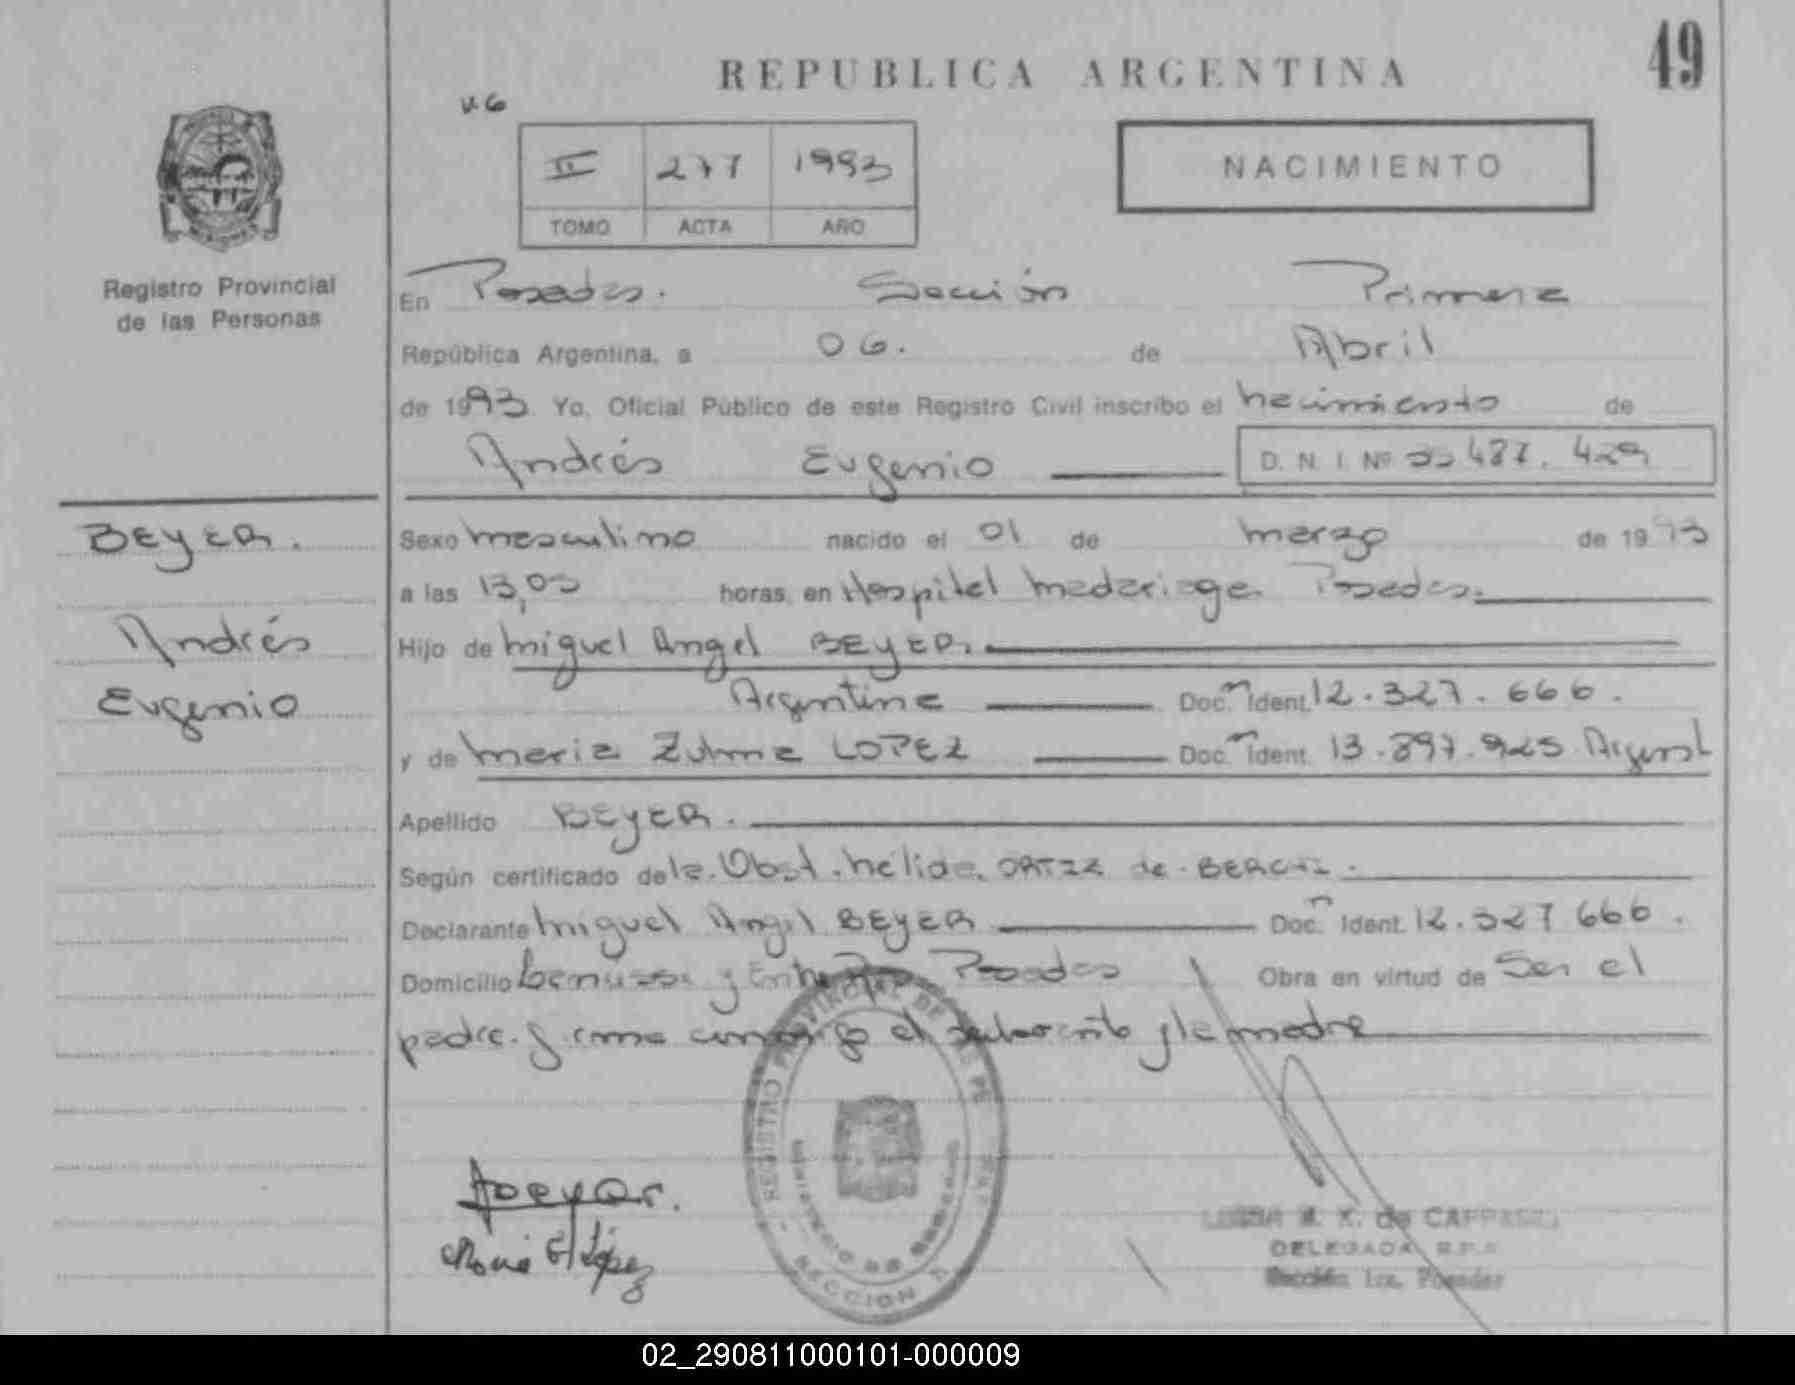 49
REPUBLICA ARGENTINA
II 277 1993
TOMO ACTA AÑO
NACIMIENTO
Registro Provincial
de las Personas
En Posadas. Sección Primera
República Argentina, a 06. de Abril
de 1993 Yo, Oficial Público de este Registro Civil inscribo el nacimiento de
Andrés Eugenio D. N. I. Nº 487.429
BEYER.
Andrés
Eugenio
Sexo masculino nacido el 01 de marzo de 1993
a las 13,05 horas, en Hospital Madariaga Posadas.
Hijo de Miguel Angel BEYER.
Argentina Doc. Ident. 12.327.666.
y de Maria Zulma LOPEZ Doc. Ident. 13.897.925 Argent
Apellido BEYER.
Según certificado de la Obst. Nélida ORTIZ de
Declarante Miguel Angel BEYER Doc. Ident. 12.327 666.
Domicilio y Entre Rios Posadas Obra en virtud de Ser el
padre. y la madre
REGISTRO PROVINCIAL DE LAS PE
SECCION
Beyer.
Maria López
DELEGADA R.P.P.
Sección 1ra. Posadas
02_290811000101-000009